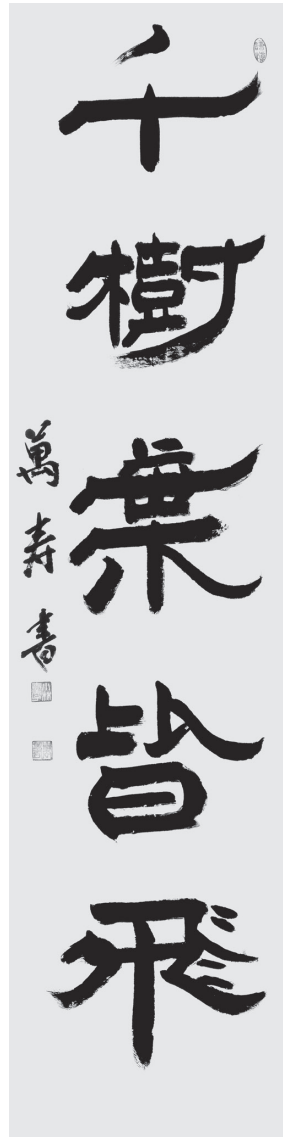 千樹葉皆飛
萬寿書